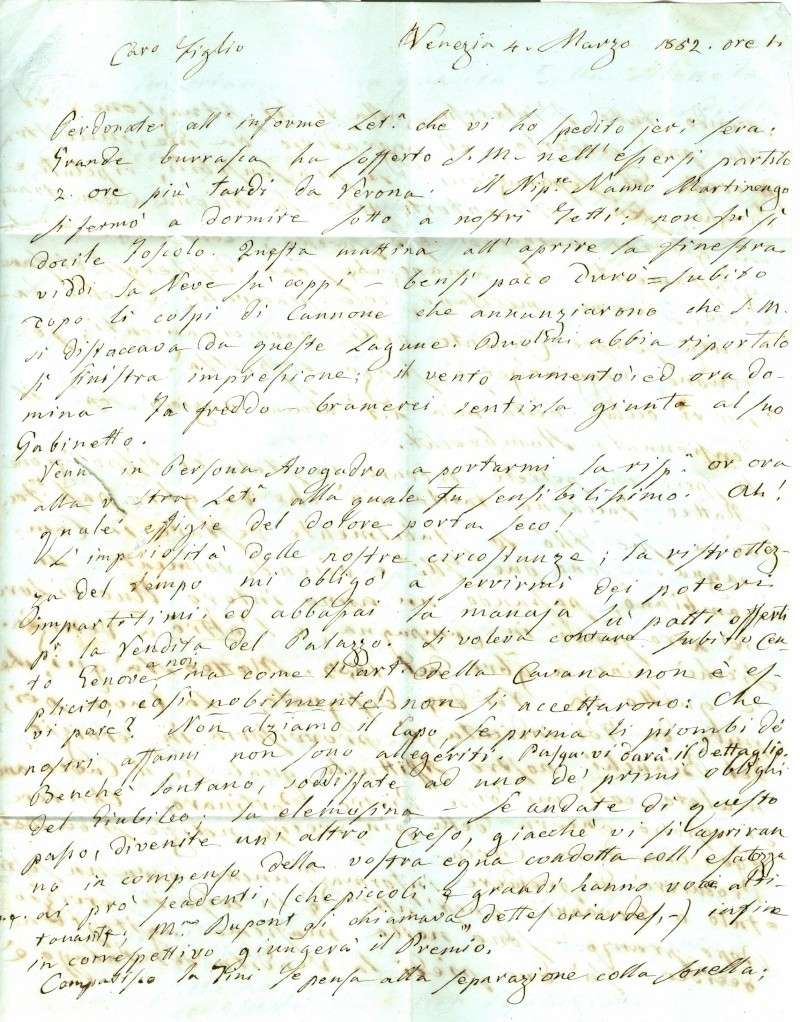 Caro Figlio Venezia 4. Marzo 1852. ore 1.
Perdonate all' informe Let.ª che vi ho spedito jeri sera.
Grande burrasca ha sofferto S.M. nell' essersi partito
2. ore più tardi da Verona. Il Nip.re Nanno Martinengo
si fermò a dormire sotto a nostri Tetti: non più sì
docile Foscolo. Questa mattina all' aprire la finestra
viddi la Neve sù coppi - bensì poco durò = subito
dopo li colpi di Cannone che annunziarono che S.M.
si distaccava da queste Lagune. abbia riportato
sì sinistra impressione; il vento aumentò: ed ora do-
mina - fà freddo - bramerei sentirla giunta al suo
Gabinetto.
Venn in Persona Avogadro a portarmi la risp.ª or ora
alla vostra Let.ª alla quale fu sensibilissimo. Ah!
quale effigie del dolore porta seco!
L' delle nostre circostanze; la ristrettez-
za del tempo mi obligò a servirmi dei poteri
impartitimi, ed abbassai la manaja sù patti offerti
p.r la Vendita del Palazzo. Si voleva contare subito Cen-
to Genove a noi, ma come l' art. della Cavana non è es-
plicito, così nobilmente non si accettarono: che
vi pare? Non alziamo il Capo se prima li piombi de'
nostri affanni non sono allegeriti. Pasqu. vi darà il dettaglio.
Benchè lontano, soddisfate ad uno de' primi oblighi
del Giubileo, la elemosina - se andate di questo
passo, divenite un' altro Creso, giacchè vi si apriran
no in compenso della vostra egna condotta coll' esatezza
ai prò scadenti, (che piccoli e grandi hanno voce alti-
tonante; M.me Dupont gli chiamava dettes criardes,-) infine
in correspettivo giungerà il Premio.
Compatisco la Nini se pensa alla separazione colla sorella;